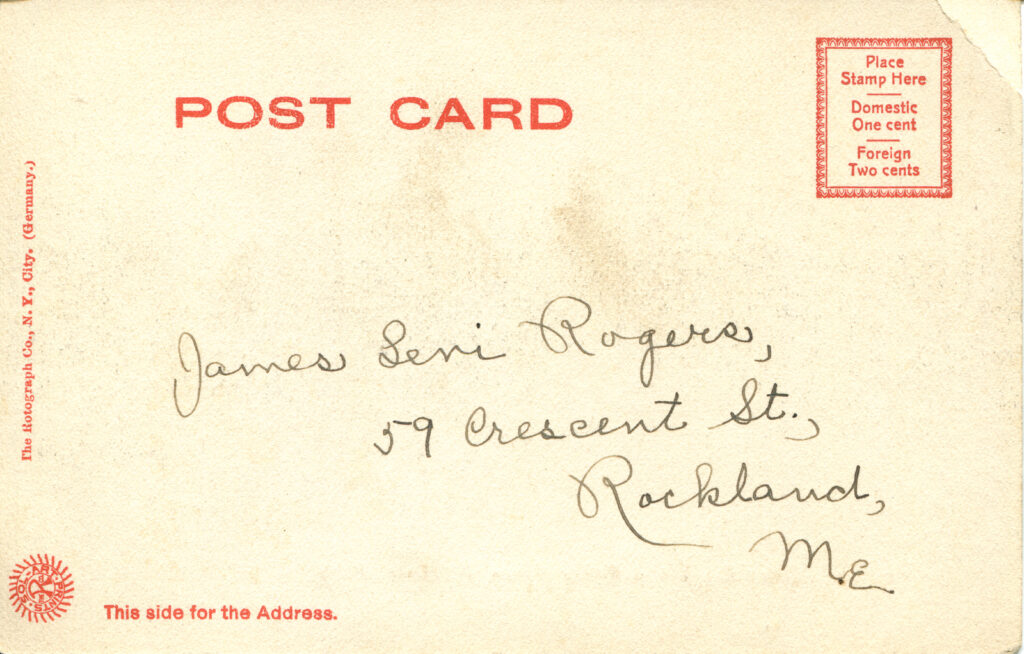 POST CARD
Place
Stamp Here
Domestic
One cent
Foreign
Two cents
The Rotograph Co., N. Y., City. (Germany.)
James Levi Rogers,
59 Crescent St.,
Rockland,
Me
SOL-ART-PRINTS
This side for the Address.